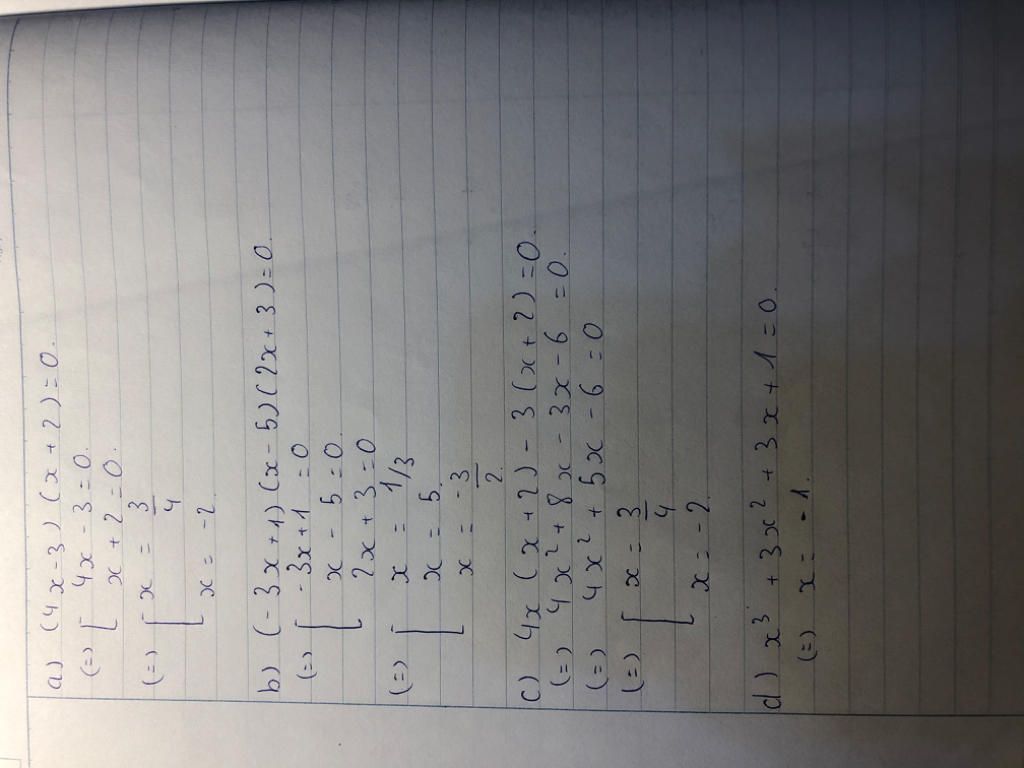 a) (4x-3)(x+2)=0.
(=) [ 4x-3=0.
x+2=0.
(=) [ x = 3/4
x = -2
b) (-3x+1)(x-5)(2x+3)=0.
(=) [ -3x+1 = 0
x - 5 = 0.
2x+3=0
(=) [ x = 1/3
x = 5.
x = -3/2.
c) 4x(x+2)-3(x+2)=0.
(=) 4x²+8x-3x-6=0.
(=) 4x²+5x-6=0
(=) [ x = 3/4
x = -2.
d) x³+3x²+3x+1=0.
(=) x = -1.